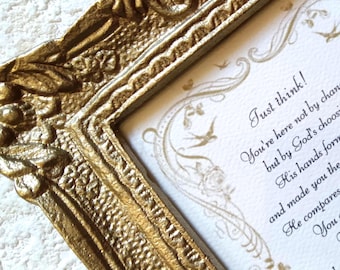 Just think!
You're here not by chan
but by God's choosin
His hands form
and made you the
He compares
You o